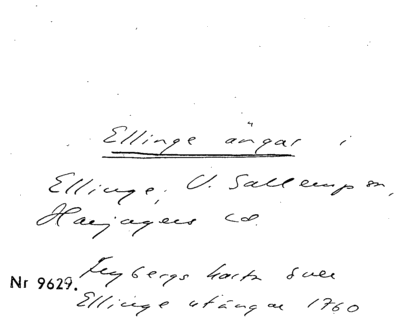 Ellinge ängar i
Ellinge, V. Sallerups sn,
Harjagers hd.
Nr 9629. Frybergs karta över
Ellinge utängar 1760